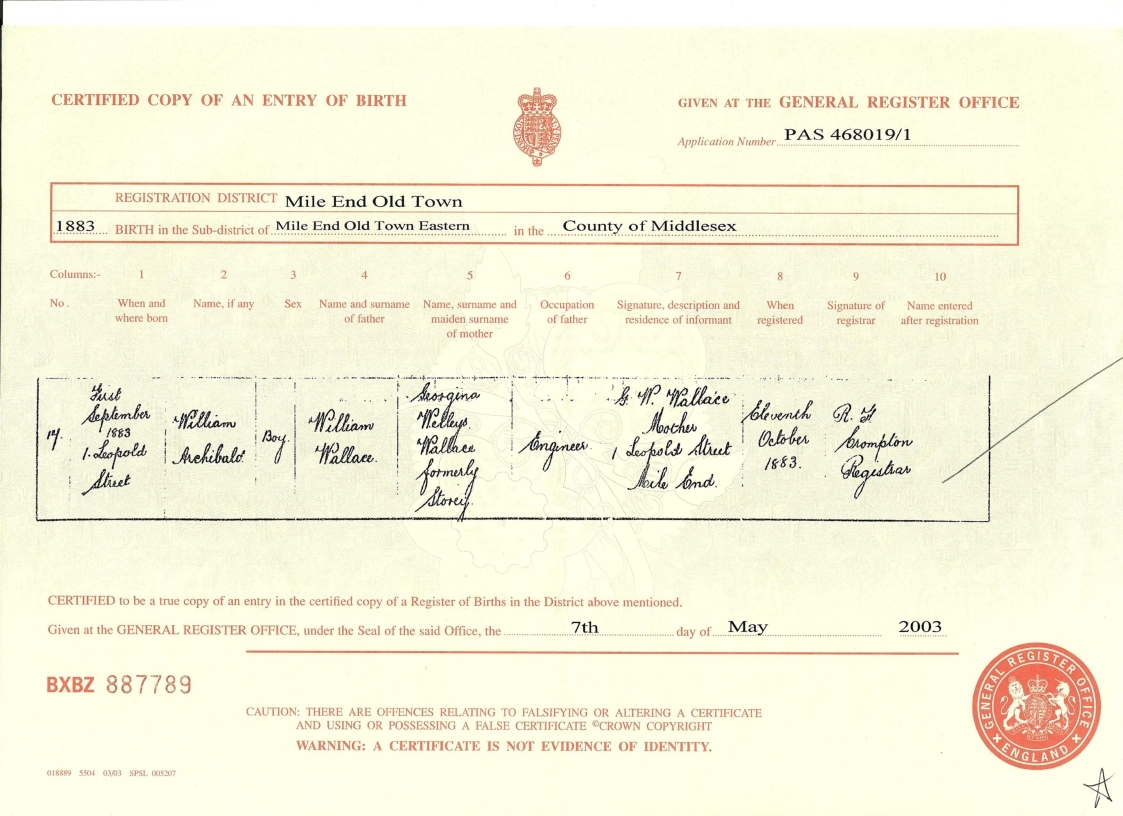 CERTIFIED COPY OF AN ENTRY OF BIRTH
GIVEN AT THE GENERAL REGISTER OFFICE
Application Number PAS 468019/1
REGISTRATION DISTRICT Mile End Old Town
1883 BIRTH in the Sub-district of Mile End Old Town Eastern in the County of Middlesex
Columns:- 1 2 3 4 5 6 7 8 9 10
No. When and where born Name, if any Sex Name and surname of father Name, surname and maiden surname of mother Occupation of father Signature, description and residence of informant When registered Signature of registrar Name entered after registration
First
September
1883
1. Leopold
Street
William
Archibald
Boy
William
Wallace.
Georgina
Welleys
Wallace
formerly
Storey
Engineer
G. W. Wallace
Mother
1 Leopold Street
Mile End.
Eleventh
October
1883.
Crompton
Registrar
CERTIFIED to be a true copy of an entry in the certified copy of a Register of Births in the District above mentioned.
Given at the GENERAL REGISTER OFFICE, under the Seal of the said Office, the 7th day of May 2003
BXBZ 887789
GENERAL REGISTER OFFICE
ENGLAND
CAUTION: THERE ARE OFFENCES RELATING TO FALSIFYING OR ALTERING A CERTIFICATE
AND USING OR POSSESSING A FALSE CERTIFICATE ©CROWN COPYRIGHT
WARNING: A CERTIFICATE IS NOT EVIDENCE OF IDENTITY.
018889 5504 03/03 SPSL 005207